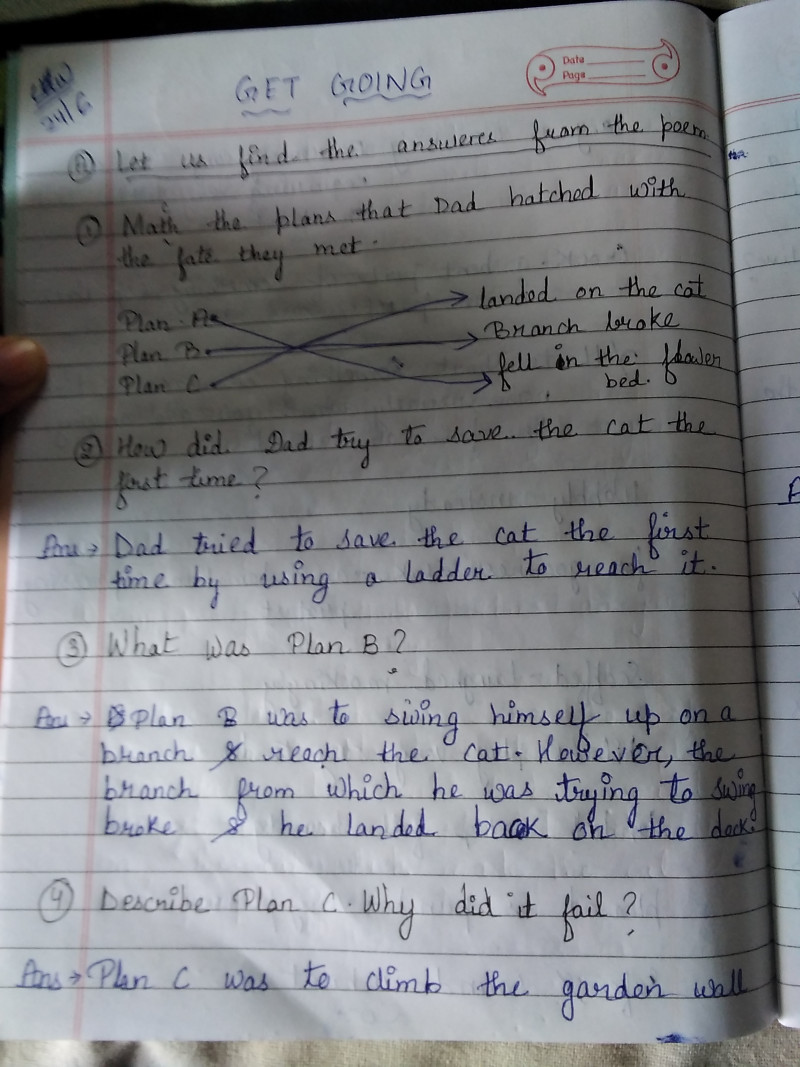 CHW
24/6
GET GOING
Date
Page
A Let us find the answeres fruam the poem
① Math the plans that Dad hatched with
the fate they met.
Plan A landed on the cat
Plan B Branch broke
Plan C fell in the flower
bed.
② How did Dad try to save the cat the
first time?
Ans → Dad tried to save the cat the first
time by using a ladder to reach it.
③ What was Plan B?
Ans → Plan B was to swing himself up on a
branch & reach the cat. However, the
branch from which he was trying to swing
broke & he landed back on the deck.
④ Describe Plan C. Why did it fail?
Ans → Plan C was to climb the garden wall